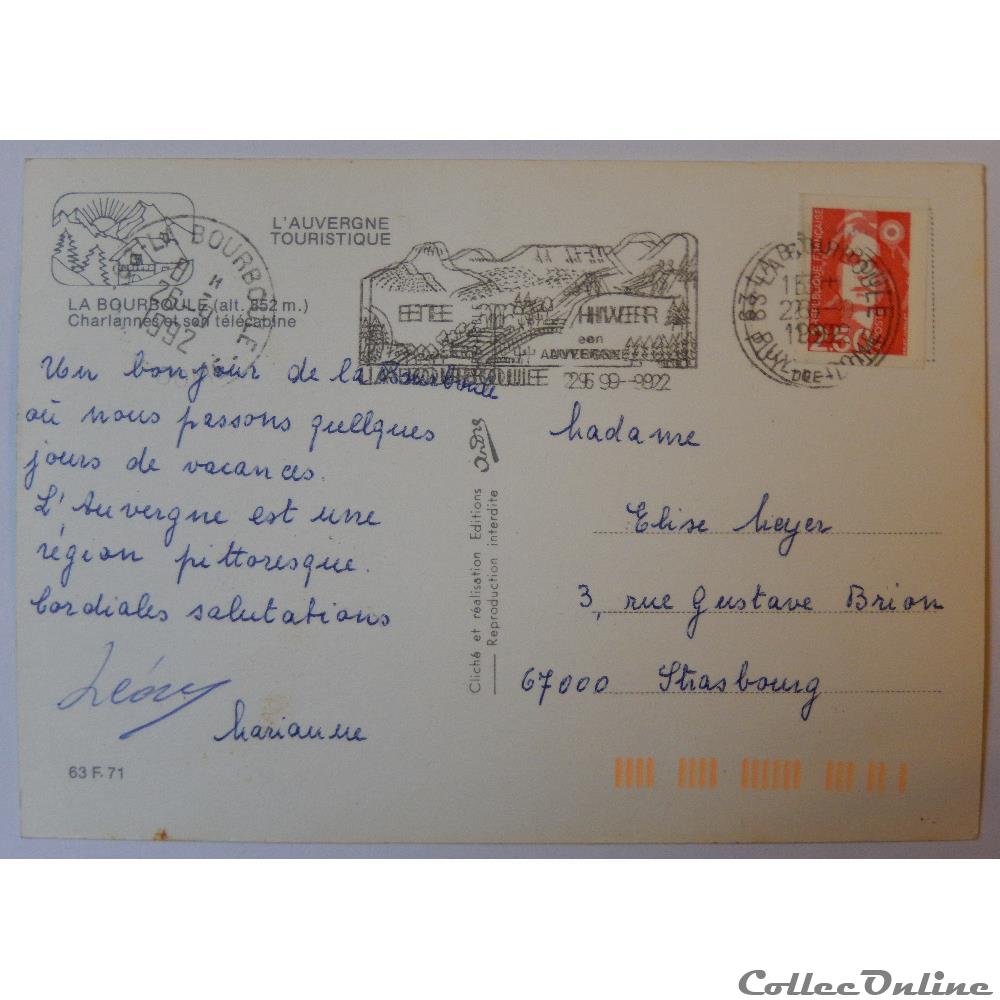 L'AUVERGNE
TOURISTIQUE
LA BOURBOULE (alt. 852 m.)
Charlannes et son télécabine
LA BOURBOULE
1992
ETE HIVER
en
AUVERGNE
LA BOURBOULE
63 LA BOURBOULE
PUY-DE-DOME
REPUBLIQUE FRANÇAISE
2,50
Un bonjour de la Bourboule
où nous passons quelques
jours de vacances.
L'Auvergne est une
région pittoresque.
Cordiales salutations
Léon
Marianne
63 F. 71
Cliché et réalisation Editions André
Reproduction interdite
Madame
Elise Meyer
3, rue Gustave Brion
67000 Strasbourg
CollecOnline